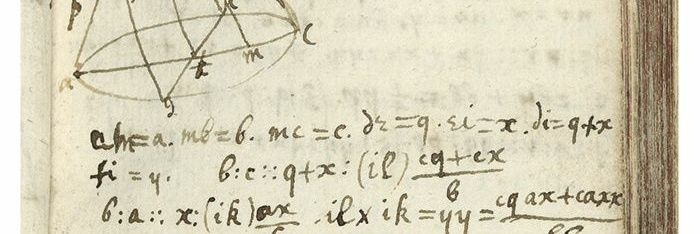 p
a k m c
d
am=a. mb=b. mc=c. dε=q. εi=x. di=q+x
fi=y. b:c::q+x:(il) cq+cx/b
b:a::x:(ik) ax/b .il x ik=yy= cqax+caxx/bb